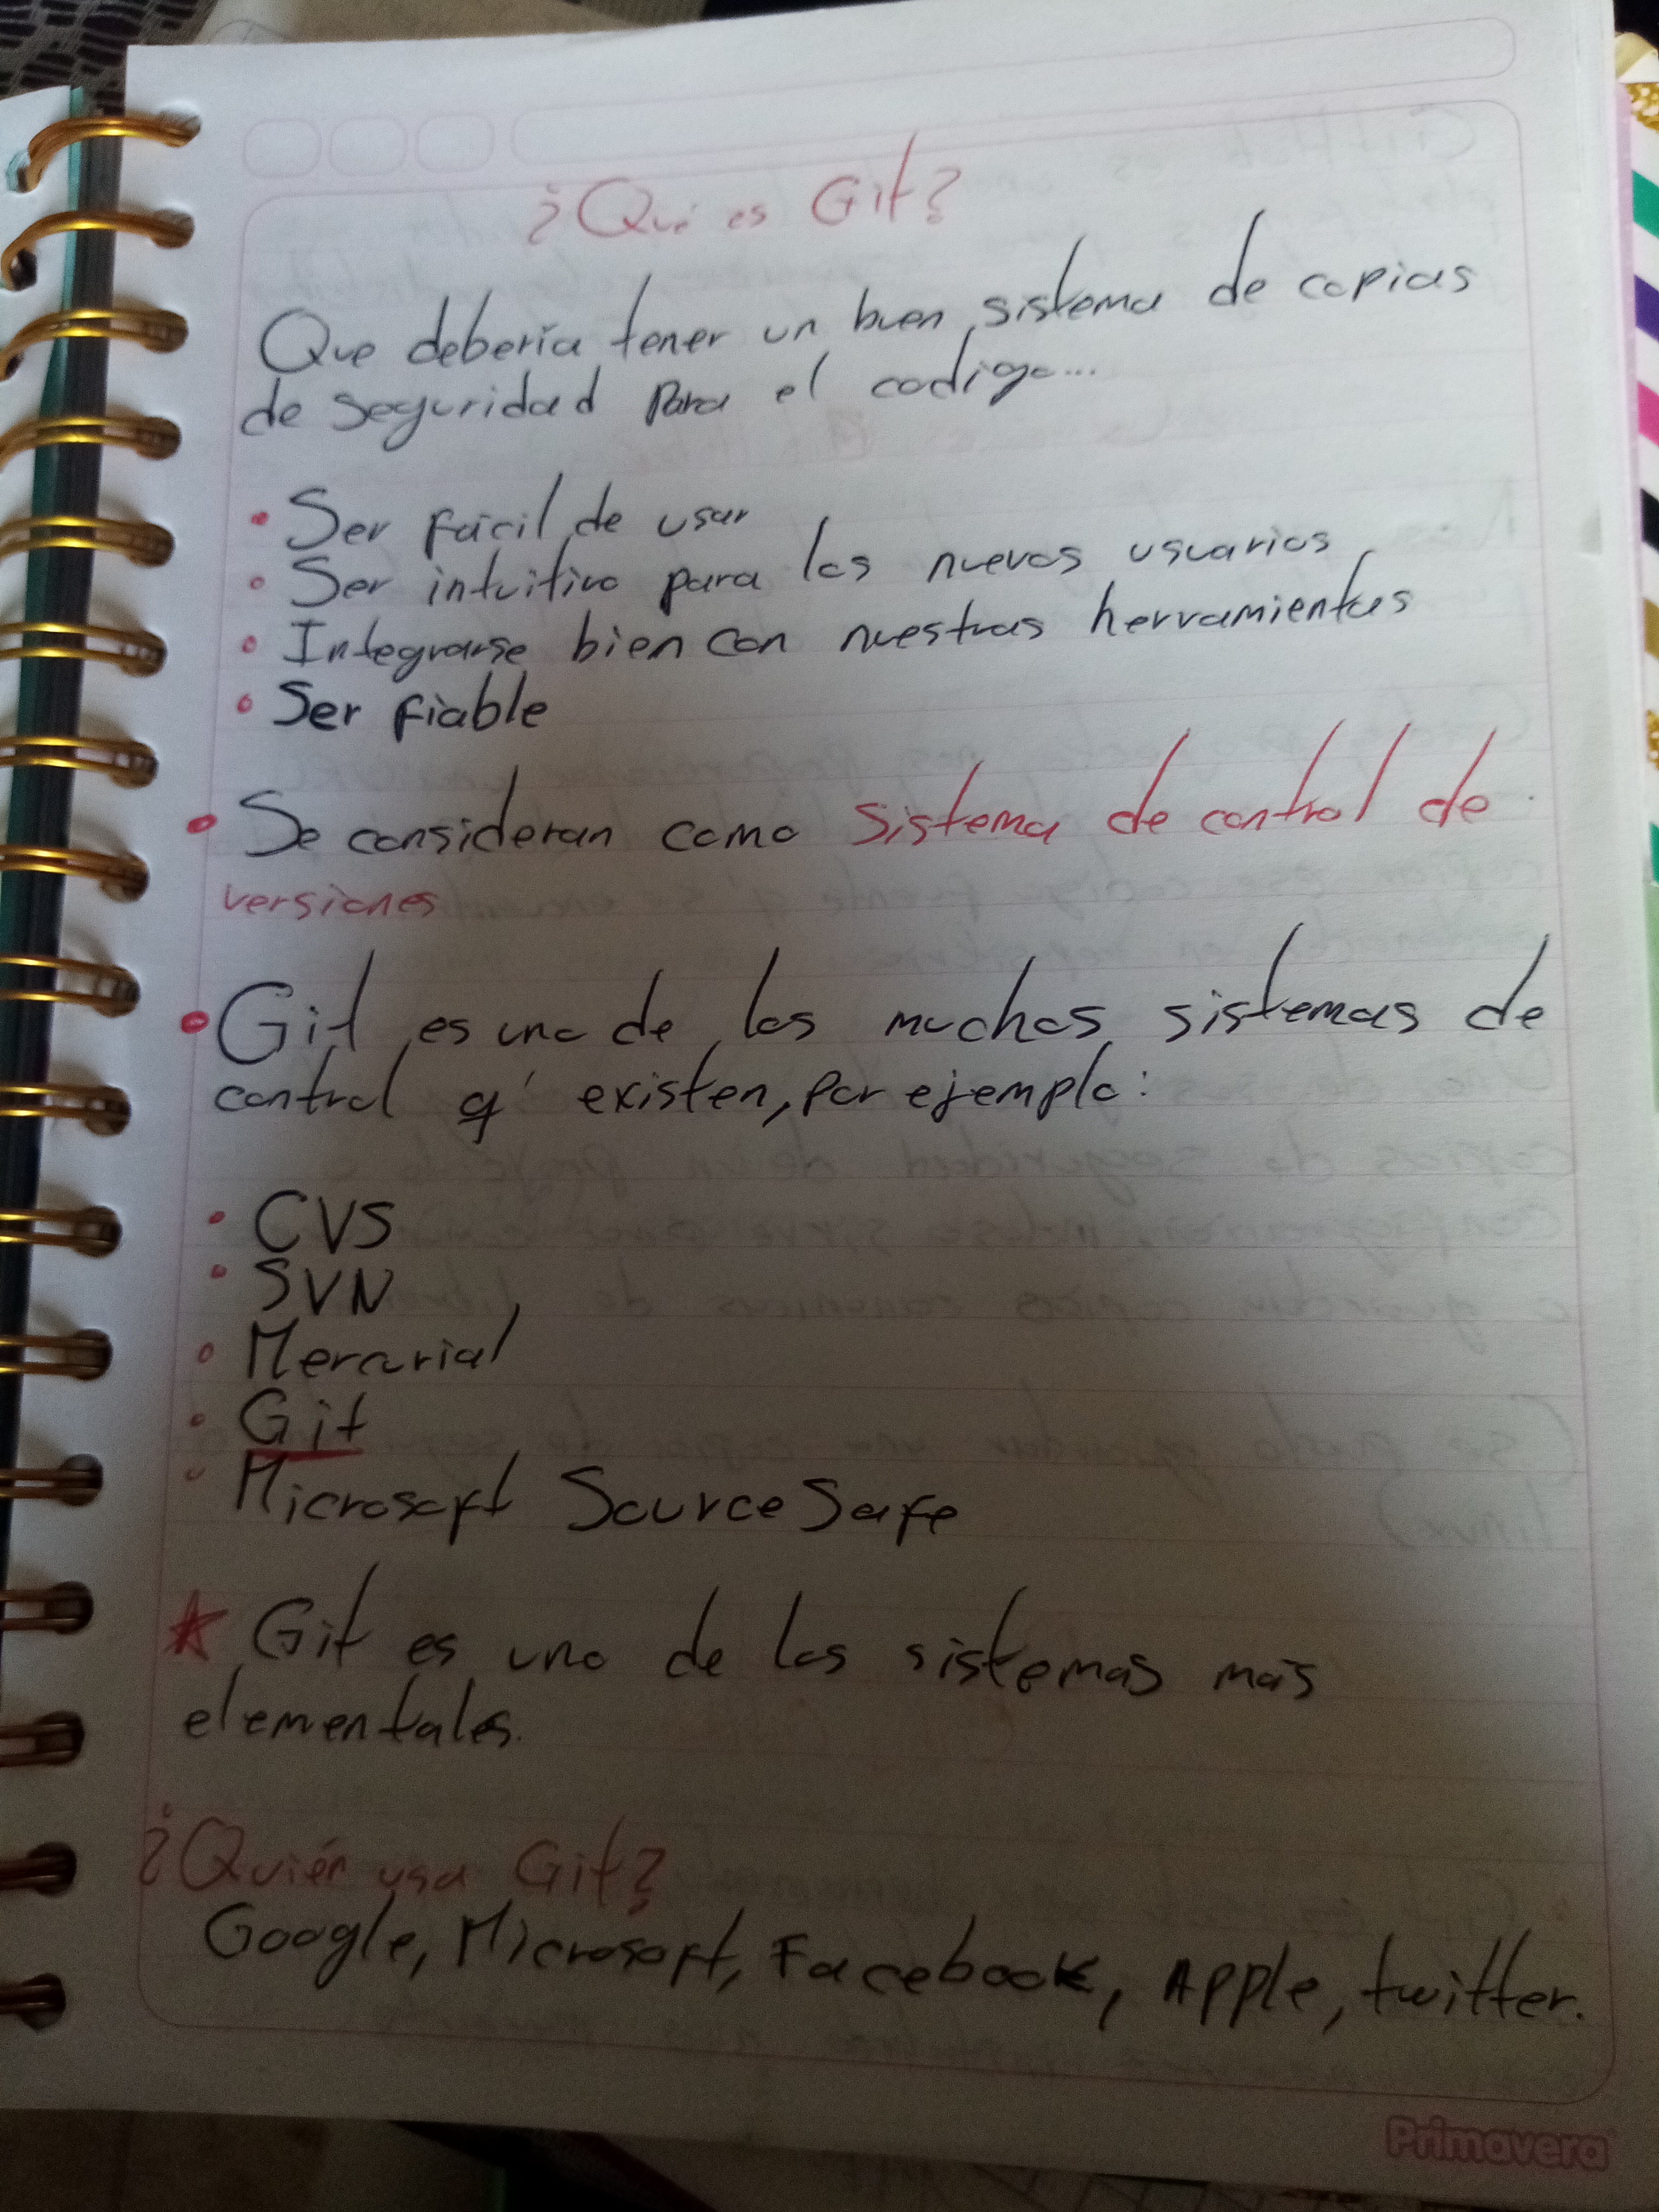 ¿Qué es Git?
Que debería tener un buen sistema de copias
de seguridad para el codigo...
• Ser fácil de usar
• Ser intuitivo para los nuevos usuarios
• Integrarse bien con nuestras herramientas
• Ser fiable
• Se consideran como sistema de control de
versiones
• Git es uno de los muchos sistemas de
control q' existen, por ejemplo:
• CVS
• SVN
• Mercurial
• Git
• Microsoft SourceSafe
★ Git es uno de los sistemas más
elementales.
¿Quién usa Git?
Google, Microsoft, Facebook, Apple, twitter.
Primavera